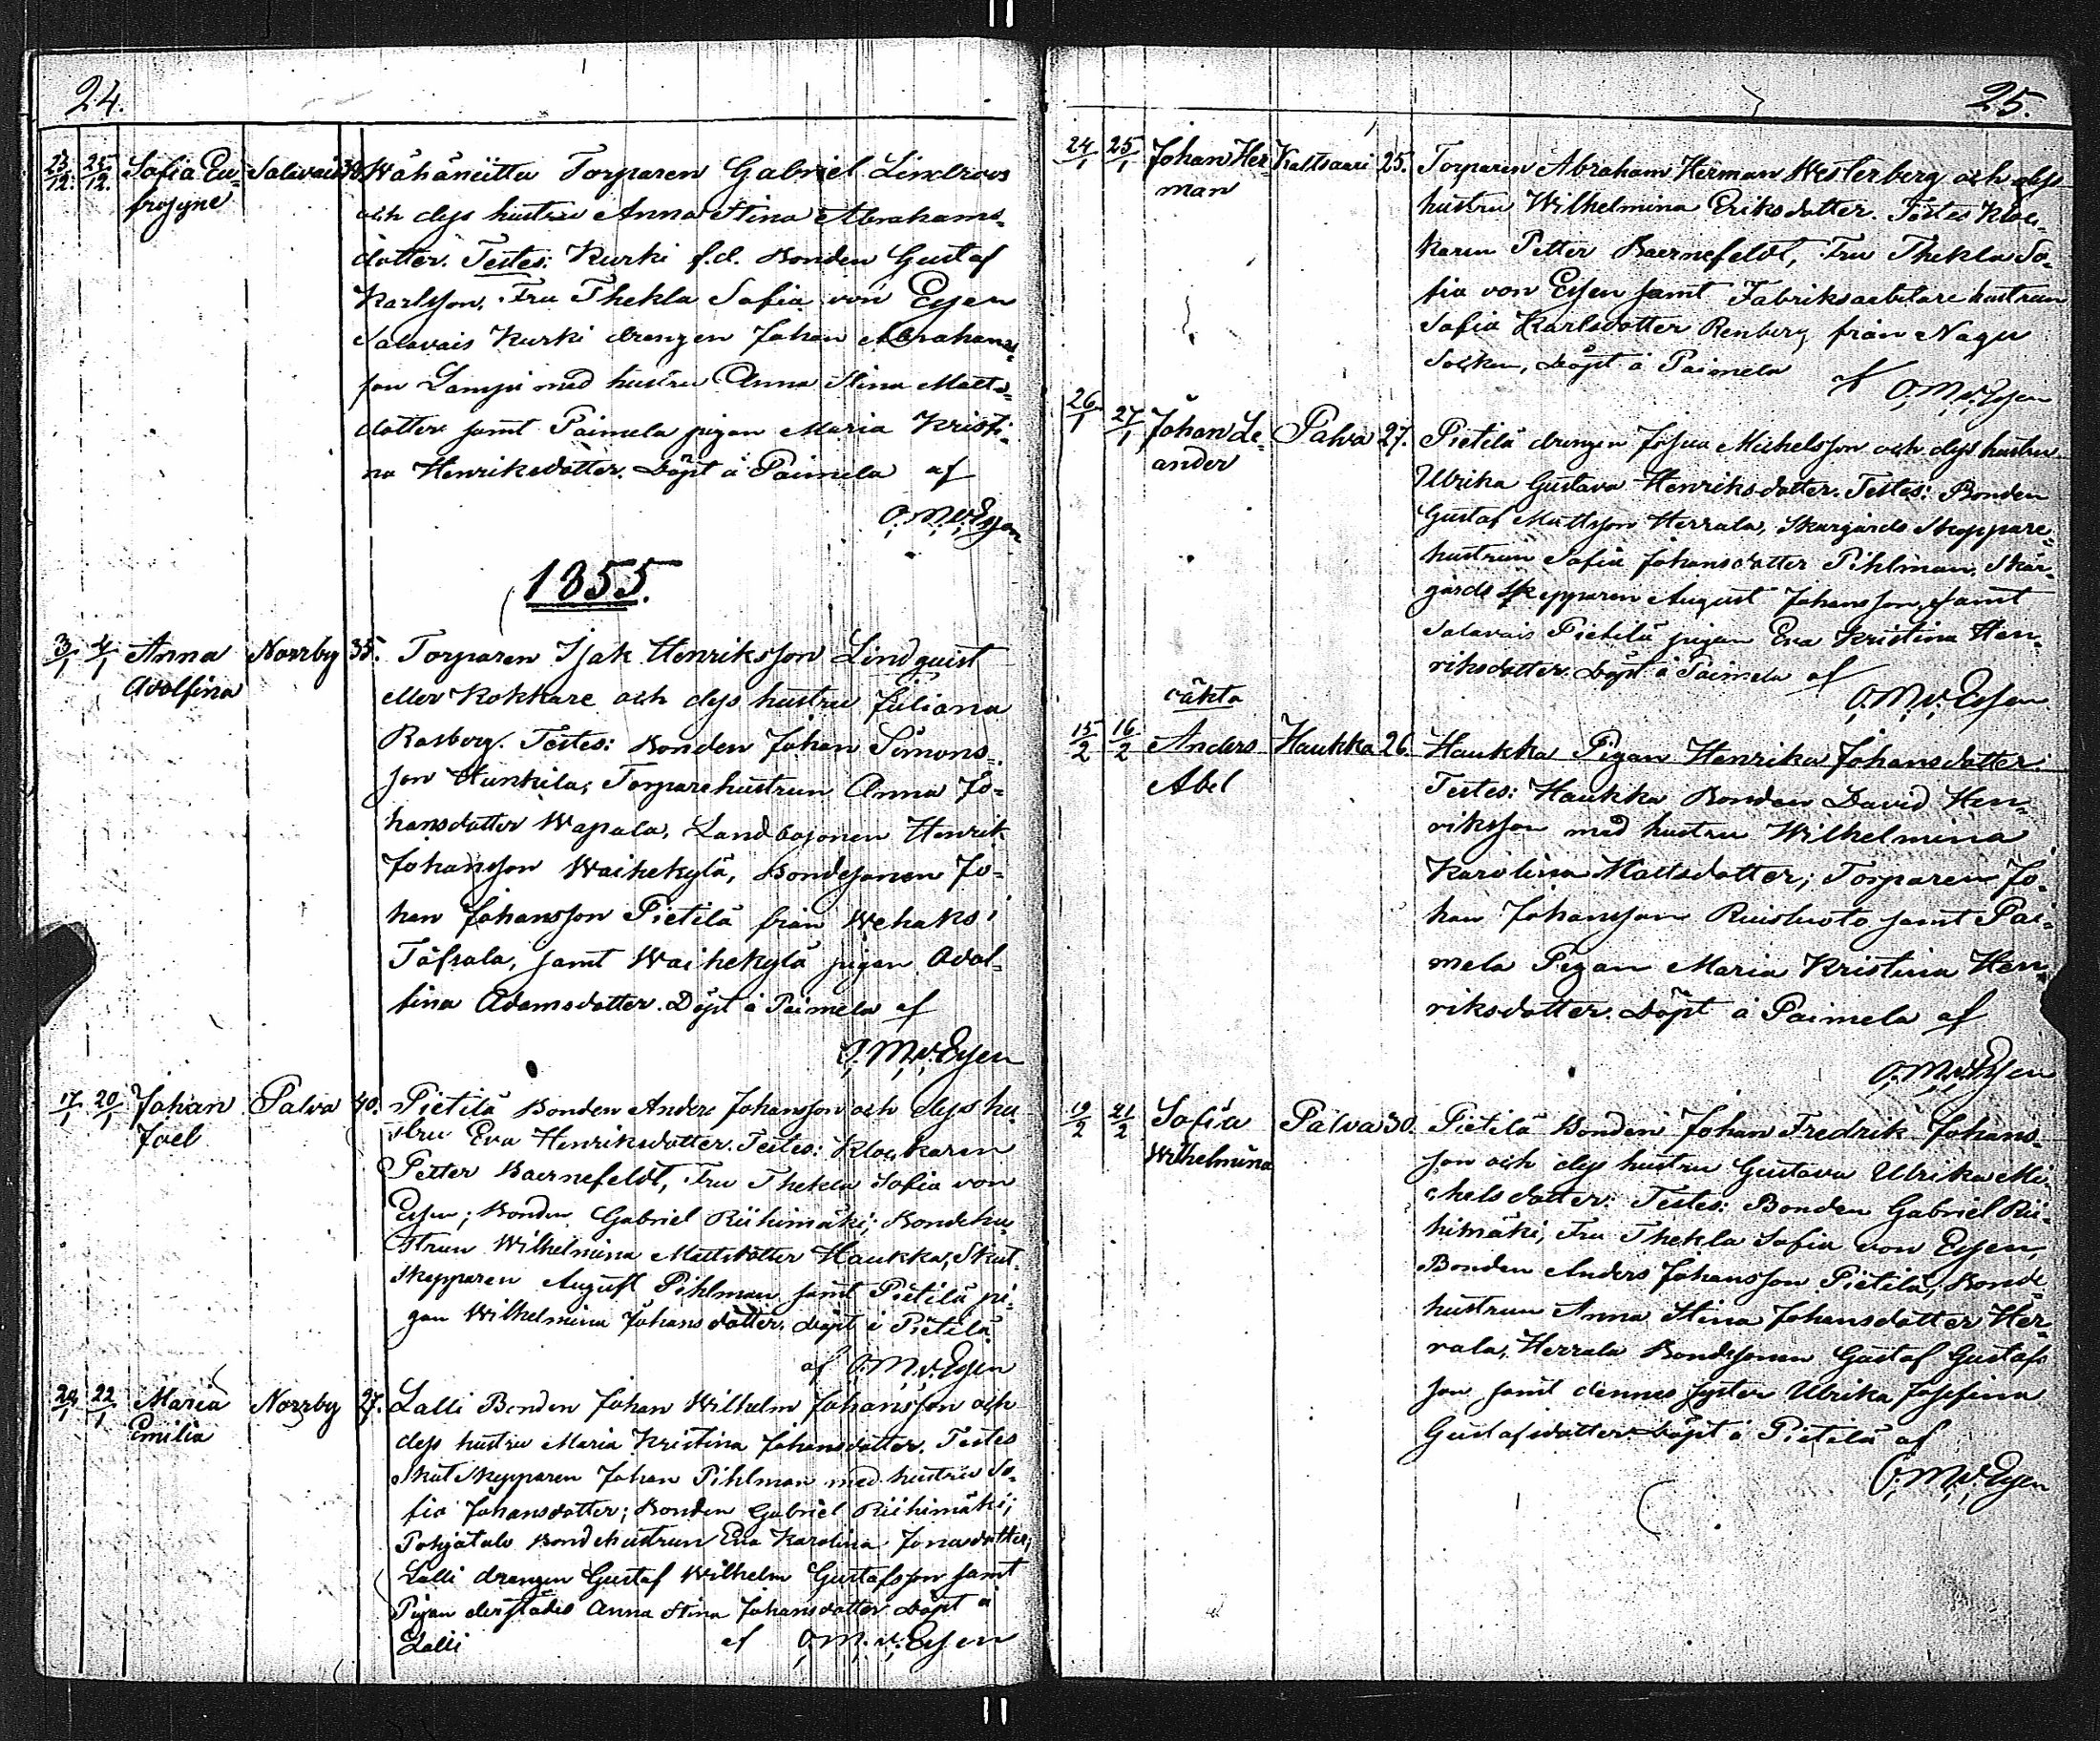 24.
23/12. 25/12. Sofia Eu- Salavais 30. Wähäniittu Torparen Gabriel Lindroos
frosyne och dess hustru Anna Stina Abrahams-
dotter. Testes: Kurki f.d. Bonden Gustaf
Karlsson, Fru Thekla Sofia von Essen
Salavais Kurki drengen Johan Abrahams-
son Lampi med hustru Anna Stina Matts-
dotter samt Paimela pigan Maria Kristi-
na Henriksdotter. Döpt å Paimela af
O.M.v.Essen
1855.
3/1 4/1 Anna Norrby 35. Torparen Isak Henriksson Lindquist
Adolfina eller Kokkare och dess hustru Juliana
Rosberg. Testes: Bonden Johan Simons-
son Hunkila, Torparehustrun Anna Jo-
hansdotter Wapala, Landbosonen Henrik
Johansson Waihekylä, Bondesonen Jo-
han Johansson Pietilä från Wehaks i
Töfsala, samt Waihekylä pigan Adol-
fina Adamsdotter. Döpt å Paimela af
O.M.v.Essen
17/1 20/1 Johan Palva 40. Pietilä Bonden Anders Johansson och dess hu-
Joel stru Eva Henriksdotter. Testes: Klockaren
Petter Baernefeldt, Fru Thekla Sofia von
Essen; Bonden Gabriel Riihimäki; Bondehu-
strun Wilhelmina Mattsdotter Haukka, Skut-
skepparen August Pihlman samt Pietilä pi-
gan Wilhelmina Johansdotter. Döpt i Pietilä
af O.M.v.Essen
22/1 Maria Norrby 27. Lalli Bonden Johan Wilhelm Johansson och
Emilia dess hustru Maria Kristina Johansdotter. Testes
Skutskepparen Johan Pihlman med hustru So-
fia Johansdotter; Bonden Gabriel Riihimäki;
Pohjatalo Bondehustrun Eva Karolina Jonasdotter,
Lalli drengen Gustaf Wilhelm Gustafsson samt
Pigan derstädes Anna Stina Johansdotter Döpt å
Lalli af O.M.v.Essen
25.
24/1 25/1 Johan Her- Kaitsaari 25. Torparen Abraham Herman Westerberg och dess
man hustru Wilhelmina Eriksdotter. Testes Kloc-
karen Petter Baernefeldt, Fru Thekla So-
fia von Essen samt Fabriksarbetare hustrun
Sofia Karlsdotter Renberg från Nagu
Socken, Döpt å Paimela
af O.M.v.Essen
26/1 27/1 Johan Le- Palva 27. Pietilä drengen Josua Michelsson och dess hustru
ander Ulrika Gustava Henriksdotter. Testes: Bonden
Gustaf Mattsson Herrala, Skärgårds Skeppare-
hustrun Sofia Johansdotter Pihlman, Skär-
gårds Skepparen August Johansson, samt
Salavais Pietilä pigan Eva Kristina Hen-
riksdotter. Döpt å Paimela af
O.M.v.Essen
oäkta
15/2 16/2 Anders Haukka 26. Haukka Pigan Henrika Johansdotter.
Abel Testes: Haukka Bonden David Hen-
riksson med hustru Wilhelmina
Karolina Mattsdotter; Torparen Jo-
han Johansson Ruisluoto samt Pai-
mela Pigan Maria Kristina Hen-
riksdotter. Döpt å Paimela af
O.M.v.Essen
19/2 21/2 Sofia Palva 30. Pietilä Bonden Johan Fredrik Johans-
Wilhelmina son och dess hustru Gustava Ulrika Mi-
chelsdotter. Testes: Bonden Gabriel Rii-
himäki, Fru Thekla Sofia von Essen
Bonden Anders Johansson Pietilä, Bonde
hustrun Anna Stina Johansdotter Her-
rala, Herrala Bondesonen Gustaf Gustafs
son samt dennes syster Ulrika Josefina
Gustafsdotter. Döpt å Pietilä af
O.M.v.Essen